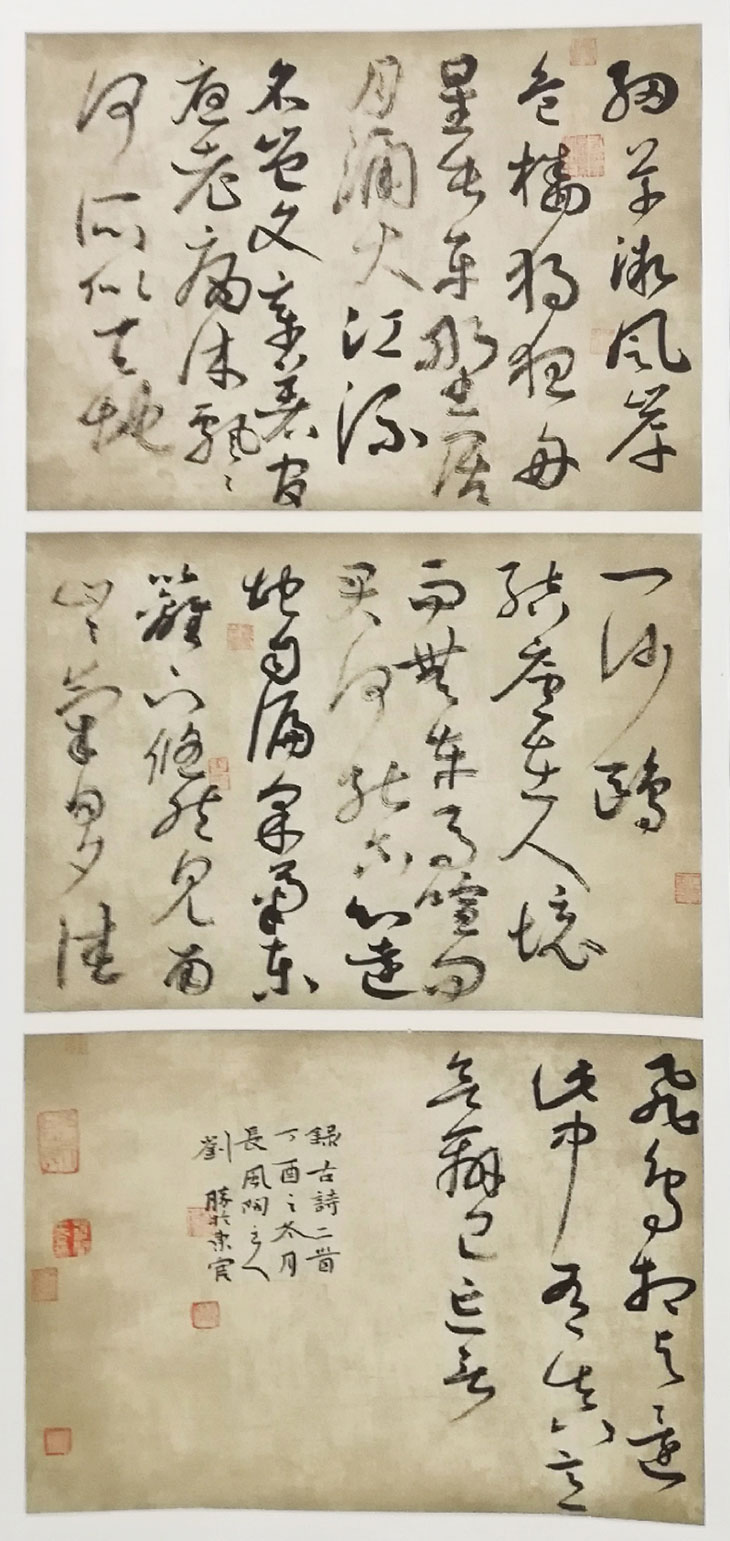 細草微風岸
危檣獨夜舟
星垂平野闊
月涌大江流
名豈文章著官
應老病休飄〻
何所似天地
一沙鷗
結廬在人境
而無車馬喧問
君何能尔心遠
地自偏采菊東
籬下悠然見南
山〻氣日夕佳
飛鳥相與還
此中有真意
欲辨已忘言
錄古詩二首
丁酉之月
長風主人
劉勝於東官